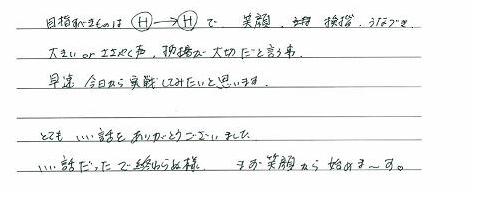 目指すべきものは Ⓗ→Ⓗ で 笑顔、挨拶、うなづき
大きい or 声、挨拶が大切だと言う事
早速 今日から実戦してみたいと思います。
とても いい話を ありがとうございました
いい話だったで終わらぬ様、まず笑顔から始めま〜す。